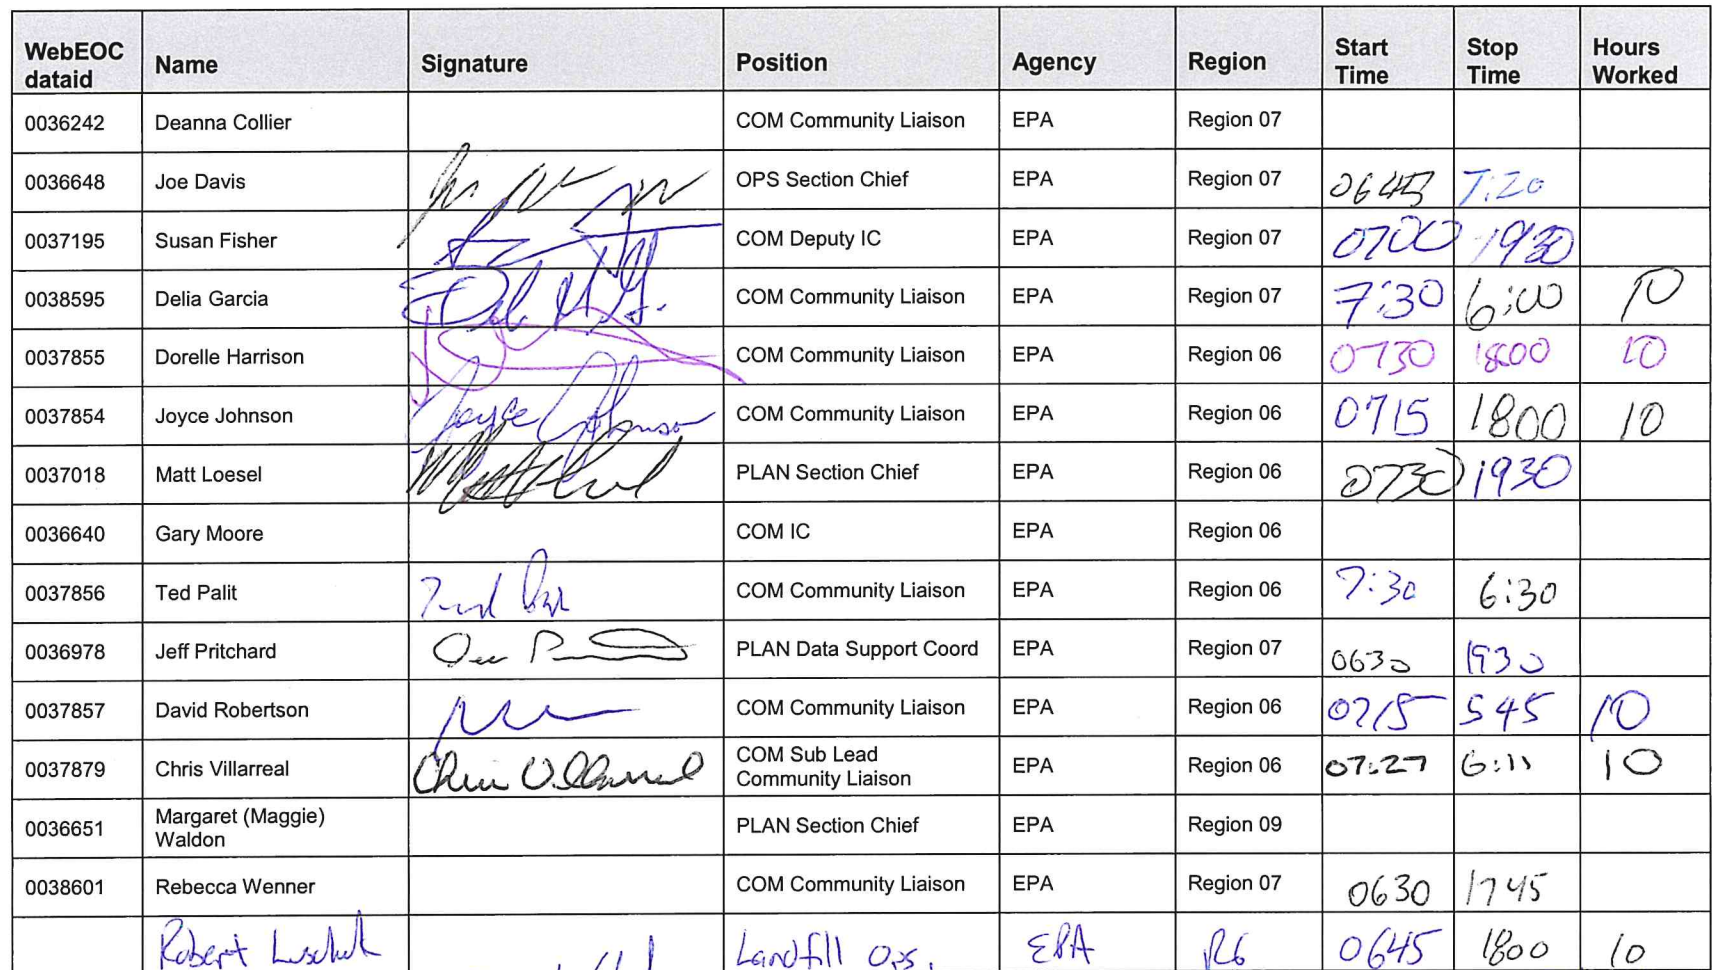 WebEOC dataid Name Signature Position Agency Region Start Time Stop Time Hours Worked
0036242 Deanna Collier COM Community Liaison EPA Region 07
0036648 Joe Davis OPS Section Chief EPA Region 07 0645 7:20
0037195 Susan Fisher COM Deputy IC EPA Region 07 0700 1930
0038595 Delia Garcia COM Community Liaison EPA Region 07 7:30 6:00 10
0037855 Dorelle Harrison COM Community Liaison EPA Region 06 0730 1800 10
0037854 Joyce Johnson Joyce Johnson COM Community Liaison EPA Region 06 0715 1800 10
0037018 Matt Loesel PLAN Section Chief EPA Region 06 0730 1930
0036640 Gary Moore COM IC EPA Region 06
0037856 Ted Palit COM Community Liaison EPA Region 06 7:30 6:30
0036978 Jeff Pritchard PLAN Data Support Coord EPA Region 07 0630 1930
0037857 David Robertson COM Community Liaison EPA Region 06 0715 545 10
0037879 Chris Villarreal Chris Villarreal COM Sub Lead Community Liaison EPA Region 06 07:27 6:11 10
0036651 Margaret (Maggie) Waldon PLAN Section Chief EPA Region 09
0038601 Rebecca Wenner COM Community Liaison EPA Region 07 0630 1745
Robert Landfill Ops. EPA R6 0645 1800 10